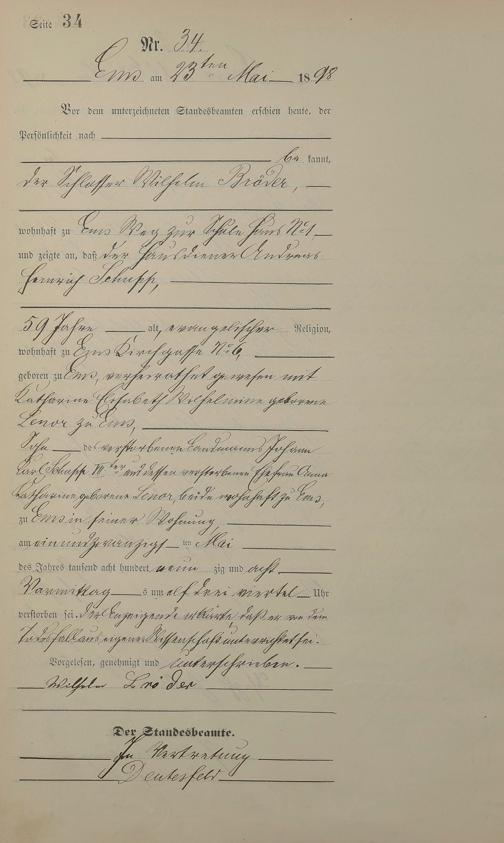 Seite 34
Nr. 34.
Ems am 23ten Mai 1898
Vor dem unterzeichneten Standesbeamten erschien heute, der
Persönlichkeit nach
bekannt,
der Schlosser Wilhelm Bröder,
wohnhaft zu Ems Weg zur Schule Haus No 1
und zeigte an, daß der Hausdiener Andreas
Heinrich
59 Jahre alt, evangelischer Religion,
wohnhaft zu Ems Kirchgasse No 6,
geboren zu Ems, verheirathet gewesen mit
Katharine Elisabeth Wilhelmine geborene
Lenor zu Ems,
Sohn des verstorbenen Landmanns Johann
Karl und dessen verstorbenen Ehefrau Anna
Katharine geborene Lenor, beide wohnhaft zu Ems,
zu Ems in seiner Wohnung,
am einundzwanzigsten Mai
des Jahres tausend acht hundert neunzig und acht
Vormittags um elf drei viertel Uhr
verstorben sei. Der Anzeigende erklärte, daß er von dem
Todesfall aus eigener Wissenschaft unterrichtet sei.
Vorgelesen, genehmigt und unterschrieben.
Wilhelm Bröder
Der Standesbeamte.
In Vertretung